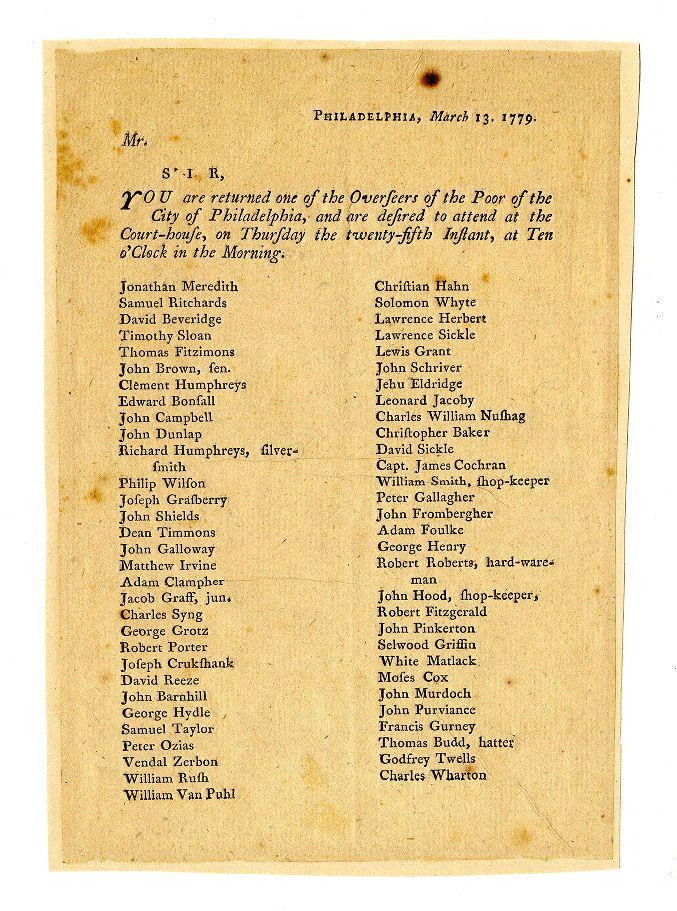 PHILADELPHIA, March 13. 1779.
Mr.
S I R,
YOU are returned one of the Overſeers of the Poor of the
City of Philadelphia, and are deſired to attend at the
Court-houſe, on Thurſday the twenty-fifth Inſtant, at Ten
o'Clock in the Morning.
Jonathan Meredith
Samuel Ritchards
David Beveridge
Timothy Sloan
Thomas Fitzimons
John Brown, ſen.
Clement Humphreys
Edward Bonſall
John Campbell
John Dunlap
Richard Humphreys, ſilver-
ſmith
Philip Wilſon
Joſeph Graſberry
John Shields
Dean Timmons
John Galloway
Matthew Irvine
Adam Clampher
Jacob Graff, jun.
Charles Syng
George Grotz
Robert Porter
Joſeph Crukſhank
David Reeze
John Barnhill
George Hydle
Samuel Taylor
Peter Ozias
Vendal Zerbon
William Ruſh
William Van Puhl
Chriſtian Hahn
Solomon Whyte
Lawrence Herbert
Lawrence Sickle
Lewis Grant
John Schriver
Jehu Eldridge
Leonard Jacoby
Charles William Nuſhag
Chriſtopher Baker
David Sickle
Capt. James Cochran
William Smith, ſhop-keeper
Peter Gallagher
John Frombergher
Adam Foulke
George Henry
Robert Roberts, hard-ware-
man
John Hood, ſhop-keeper,
Robert Fitzgerald
John Pinkerton
Selwood Griffin
White Matlack
Moſes Cox
John Murdoch
John Purviance
Francis Gurney
Thomas Budd, hatter
Godfrey Twells
Charles Wharton